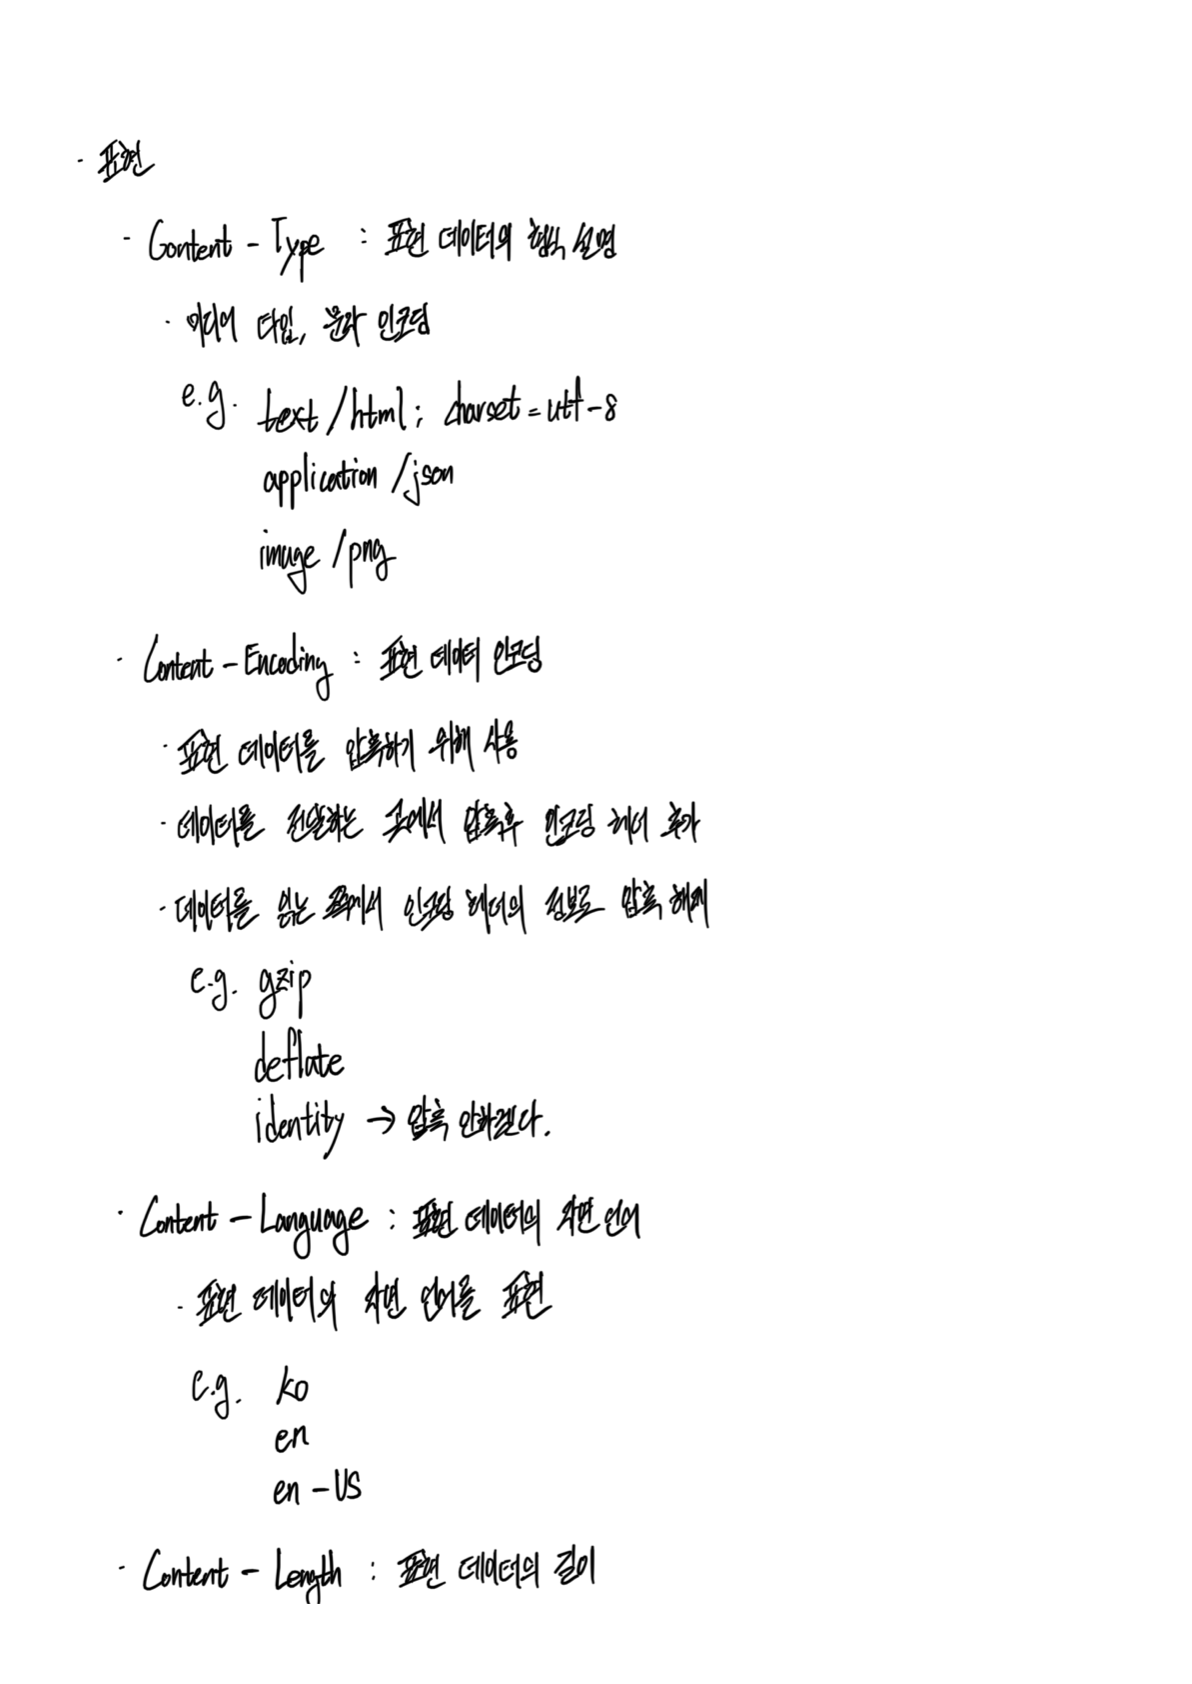 · 표현
- Content-Type : 표현 데이터의 형식 설명
· 미디어 타입, 문자 인코딩
e.g. text/html; charset=utf-8
application/json
image/png
· Content-Encoding : 표현 데이터 인코딩
· 표현 데이터를 압축하기 위해 사용
· 데이터를 전달하는 곳에서 압축후 인코딩 헤더 추가
· 데이터를 읽는 쪽에서 인코딩 헤더의 정보로 압축 해제
e.g. gzip
deflate
identity → 압축 안하겠다.
· Content-Language : 표현 데이터의 자연 언어
· 표현 데이터의 자연 언어를 표현
e.g. ko
en
en-US
· Content-Length : 표현 데이터의 길이